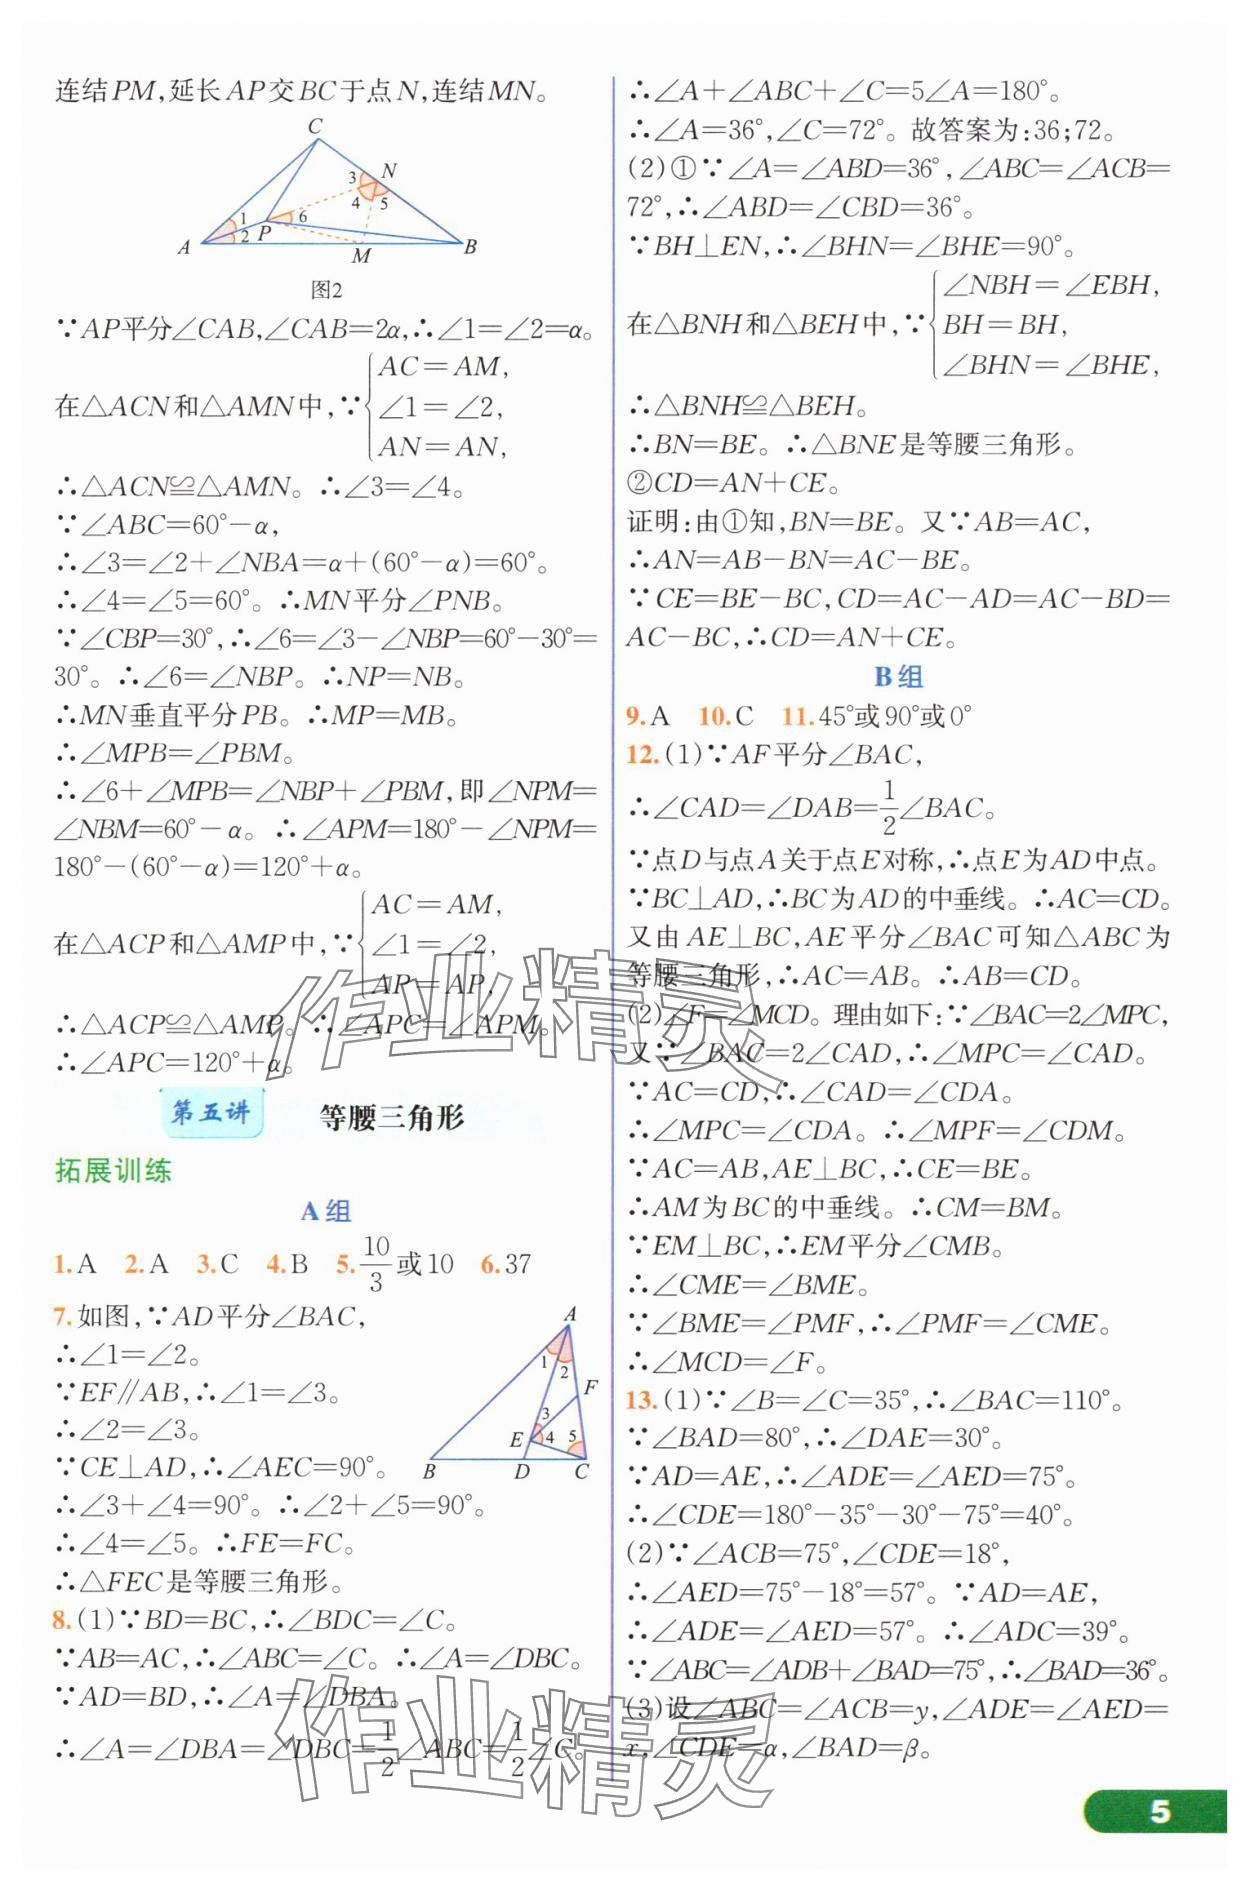 连结PM,延长AP交BC于点N,连结MN。
C
N
3
4
5
1
2
6
P
A
M
B
图2
∵AP平分∠CAB,∠CAB=2α,∴∠1=∠2=α。
在△ACN和△AMN中,∵{AC=AM,
∠1=∠2,
AN=AN,
∴△ACN≌△AMN。∴∠3=∠4。
∵∠ABC=60°-α,
∴∠3=∠2+∠NBA=α+(60°-α)=60°。
∴∠4=∠5=60°。∴MN平分∠PNB。
∵∠CBP=30°,∴∠6=∠3-∠NBP=60°-30°=
30°。∴∠6=∠NBP。∴NP=NB。
∴MN垂直平分PB。∴MP=MB。
∴∠MPB=∠PBM。
∴∠6+∠MPB=∠NBP+∠PBM,即∠NPM=
∠NBM=60°-α。∴∠APM=180°-∠NPM=
180°-(60°-α)=120°+α。
在△ACP和△AMP中,∵{AC=AM,
∠1=∠2,
AP=AP,
∴△ACP≌△AMP。∴∠APC=∠APM。
∴∠APC=120°+α。
第五讲 等腰三角形
拓展训练
A组
1.A 2.A 3.C 4.B 5.10/3或10 6.37
7.如图,∵AD平分∠BAC,
∴∠1=∠2。
∵EF∥AB,∴∠1=∠3。
∴∠2=∠3。
∵CE⊥AD,∴∠AEC=90°。
∴∠3+∠4=90°。∴∠2+∠5=90°。
∴∠4=∠5。∴FE=FC。
∴△FEC是等腰三角形。
A
1
2
F
3
E
4
5
B
D
C
8.(1)∵BD=BC,∴∠BDC=∠C。
∵AB=AC,∴∠ABC=∠C。∴∠A=∠DBC。
∵AD=BD,∴∠A=∠DBA。
∴∠A=∠DBA=∠DBC=1/2∠ABC=1/2∠C。
∴∠A+∠ABC+∠C=5∠A=180°。
∴∠A=36°,∠C=72°。故答案为:36;72。
(2)①∵∠A=∠ABD=36°,∠ABC=∠ACB=
72°,∴∠ABD=∠CBD=36°。
∵BH⊥EN,∴∠BHN=∠BHE=90°。
在△BNH和△BEH中,∵{∠NBH=∠EBH,
BH=BH,
∠BHN=∠BHE,
∴△BNH≌△BEH。
∴BN=BE。∴△BNE是等腰三角形。
②CD=AN+CE。
证明:由①知,BN=BE。又∵AB=AC,
∴AN=AB-BN=AC-BE。
∵CE=BE-BC,CD=AC-AD=AC-BD=
AC-BC,∴CD=AN+CE。
B组
9.A 10.C 11.45°或90°或0°
12.(1)∵AF平分∠BAC,
∴∠CAD=∠DAB=1/2∠BAC。
∵点D与点A关于点E对称,∴点E为AD中点。
∵BC⊥AD,∴BC为AD的中垂线。∴AC=CD。
又由AE⊥BC,AE平分∠BAC可知△ABC为
等腰三角形,∴AC=AB。∴AB=CD。
(2)∠F=∠MCD。理由如下:∵∠BAC=2∠MPC,
又∵∠BAC=2∠CAD,∴∠MPC=∠CAD。
∵AC=CD,∴∠CAD=∠CDA。
∴∠MPC=∠CDA。∴∠MPF=∠CDM。
∵AC=AB,AE⊥BC,∴CE=BE。
∴AM为BC的中垂线。∴CM=BM。
∵EM⊥BC,∴EM平分∠CMB。
∴∠CME=∠BME。
∵∠BME=∠PMF,∴∠PMF=∠CME。
∴∠MCD=∠F。
13.(1)∵∠B=∠C=35°,∴∠BAC=110°。
∵∠BAD=80°,∴∠DAE=30°。
∵AD=AE,∴∠ADE=∠AED=75°。
∴∠CDE=180°-35°-30°-75°=40°。
(2)∵∠ACB=75°,∠CDE=18°,
∴∠AED=75°-18°=57°。∵AD=AE,
∴∠ADE=∠AED=57°。∴∠ADC=39°。
∵∠ABC=∠ADB+∠BAD=75°,∴∠BAD=36°。
(3)设∠ABC=∠ACB=y,∠ADE=∠AED=
x,∠CDE=α,∠BAD=β。
5
作业精灵
作业精灵